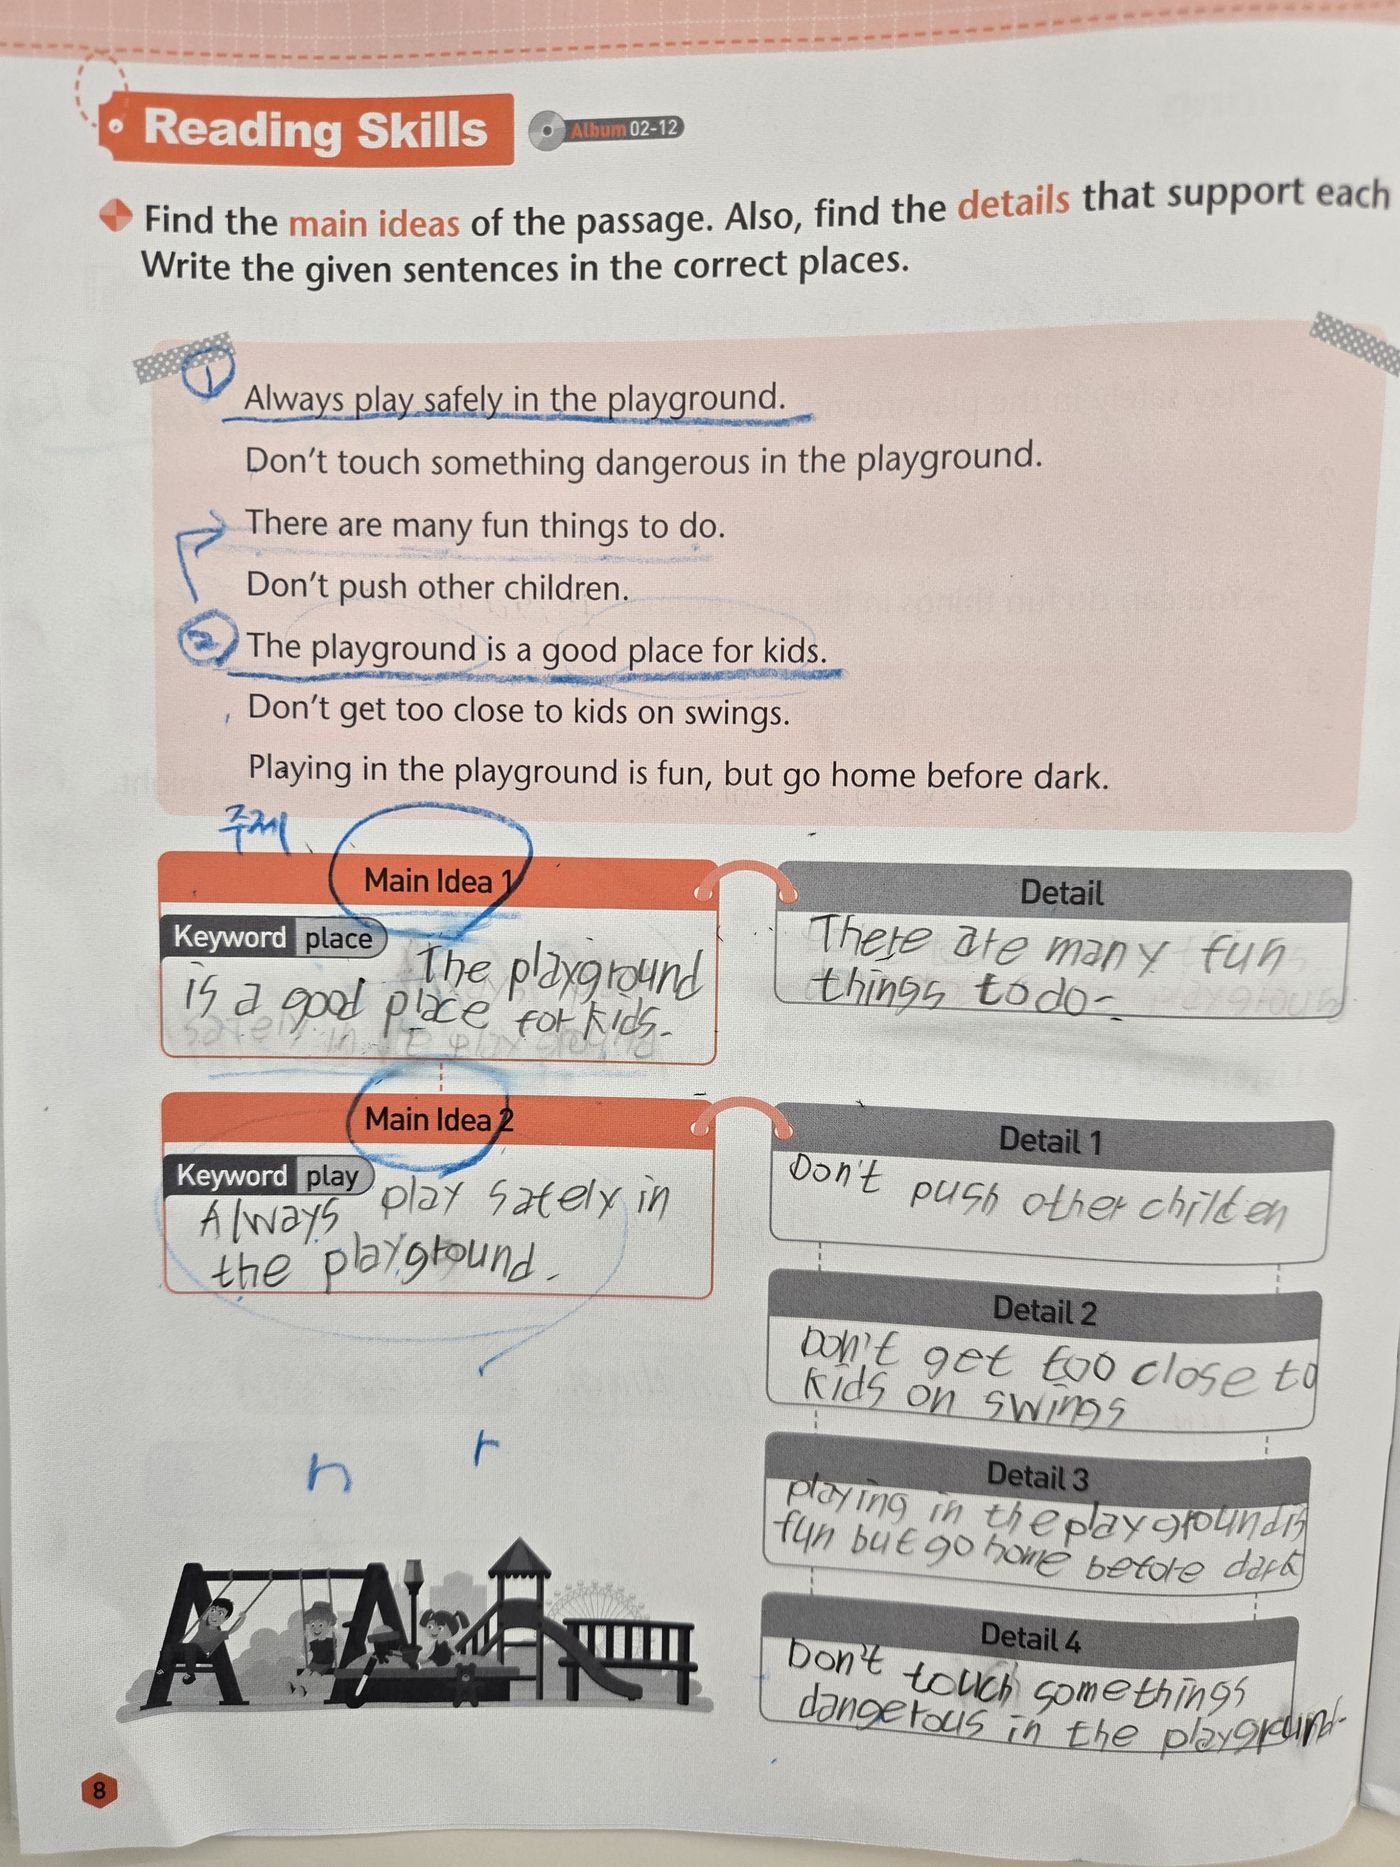 Reading Skills
Album 02-12
Find the main ideas of the passage. Also, find the details that support each
Write the given sentences in the correct places.
1
Always play safely in the playground.
Don't touch something dangerous in the playground.
There are many fun things to do.
Don't push other children.
2
The playground is a good place for kids.
Don't get too close to kids on swings.
Playing in the playground is fun, but go home before dark.
주제
Main Idea 1
Keyword place
The playground
is a good place for kids.
Detail
There are many fun
things to do.
Main Idea 2
Keyword play
Always play safely in
the playground.
Detail 1
Don't push other children
Detail 2
Don't get too close to
kids on swings
Detail 3
playing in the playground is
fun but go home before dark
Detail 4
Don't touch somethings
dangerous in the playground.
n r
8